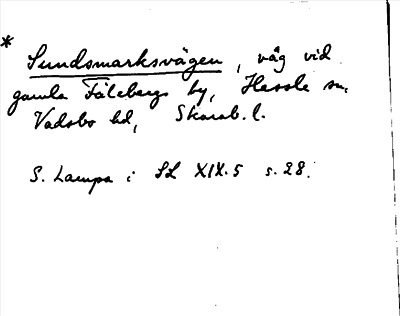 * Sundsmarksvägen, väg vid
gamla Fåleberg by, Hassle sn,
Vadsbo hd, Skarab. l.
S. Lampa i SL XIX.5 s. 28.